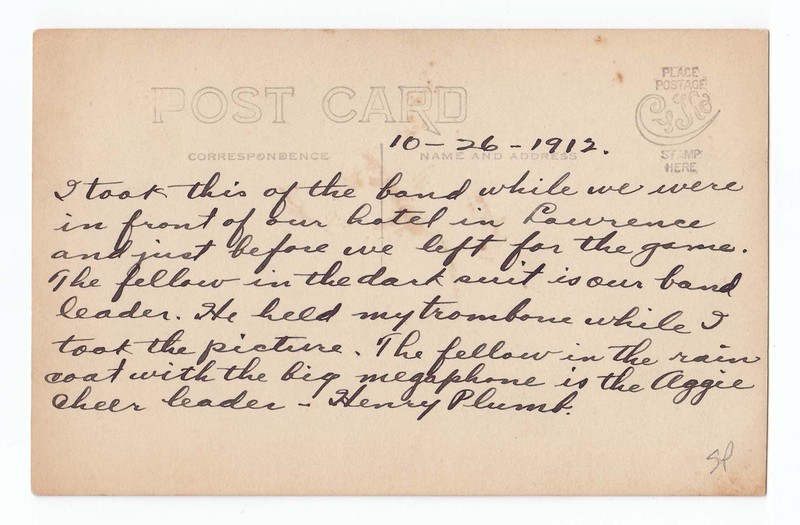 POST CARD
PLACE
POSTAGE
STAMP
HERE
CORRESPONDENCE
NAME AND ADDRESS
10-26-1912.
I took this of the band while we were
in front of our hotel in Lawrence
and just before we left for the game.
The fellow in the dark suit is our band
leader. He held my trombone while I
took the picture. The fellow in the rain
coat with the big megaphone is the Aggie
cheer leader - Henry Plumb.